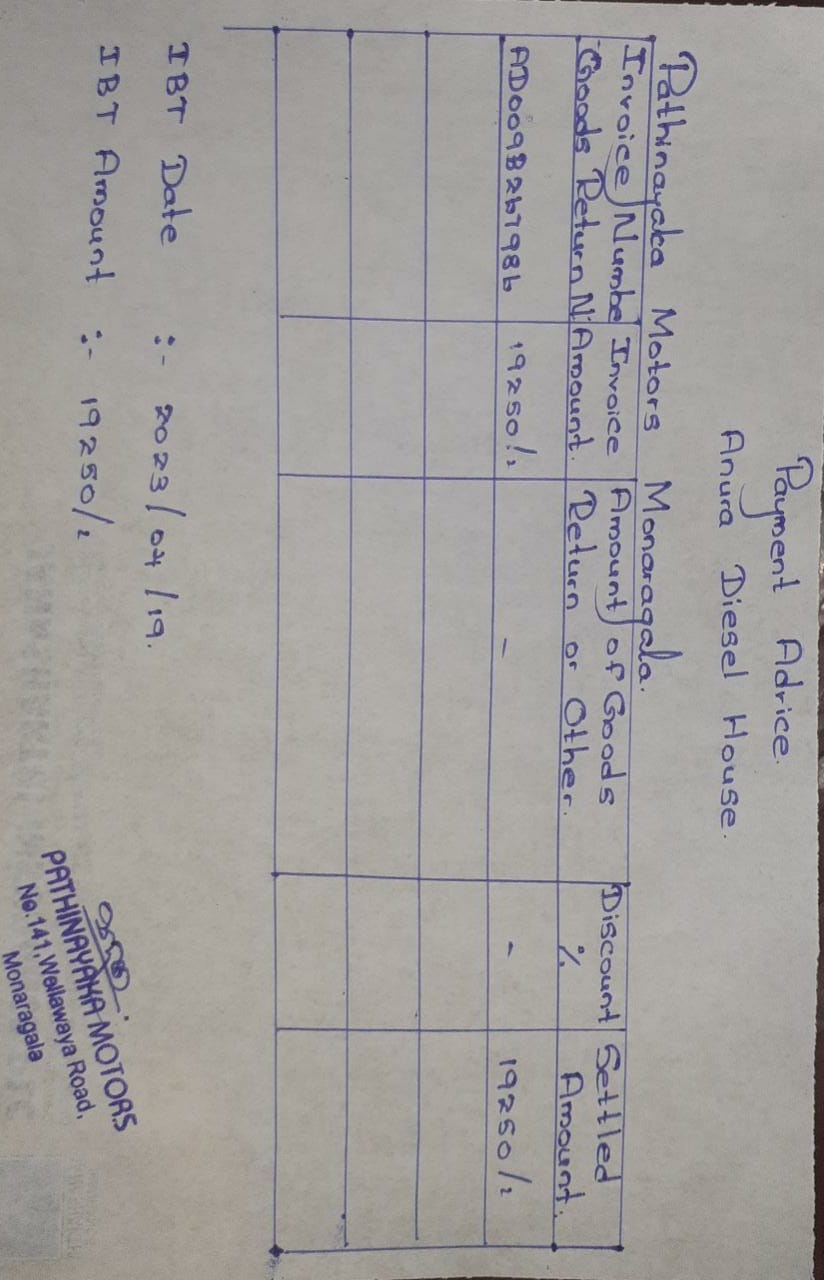 Payment Advice.
Anura Diesel House.
Pathinayaka Motors Monaragala.
Invoice Numbe Invoice Amount of Goods Discount Settled
Goods Return N: Amount. Return or Other. % Amount.
AD009B267986 19250/= - - 19250/=
IBT Date :- 2023/04/19.
IBT Amount :- 19250/=
PATHINAYAKA MOTORS
No.141, Wellawaya Road,
Monaragala